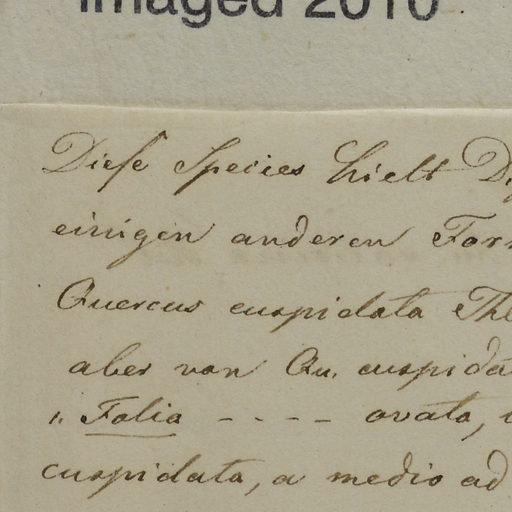 Imaged 2010
Diese Species hielt
einigen anderen
Quercus cuspidata
aber von Qu.
„ Folia - - - - ovata,
cuspidata, a medio ad